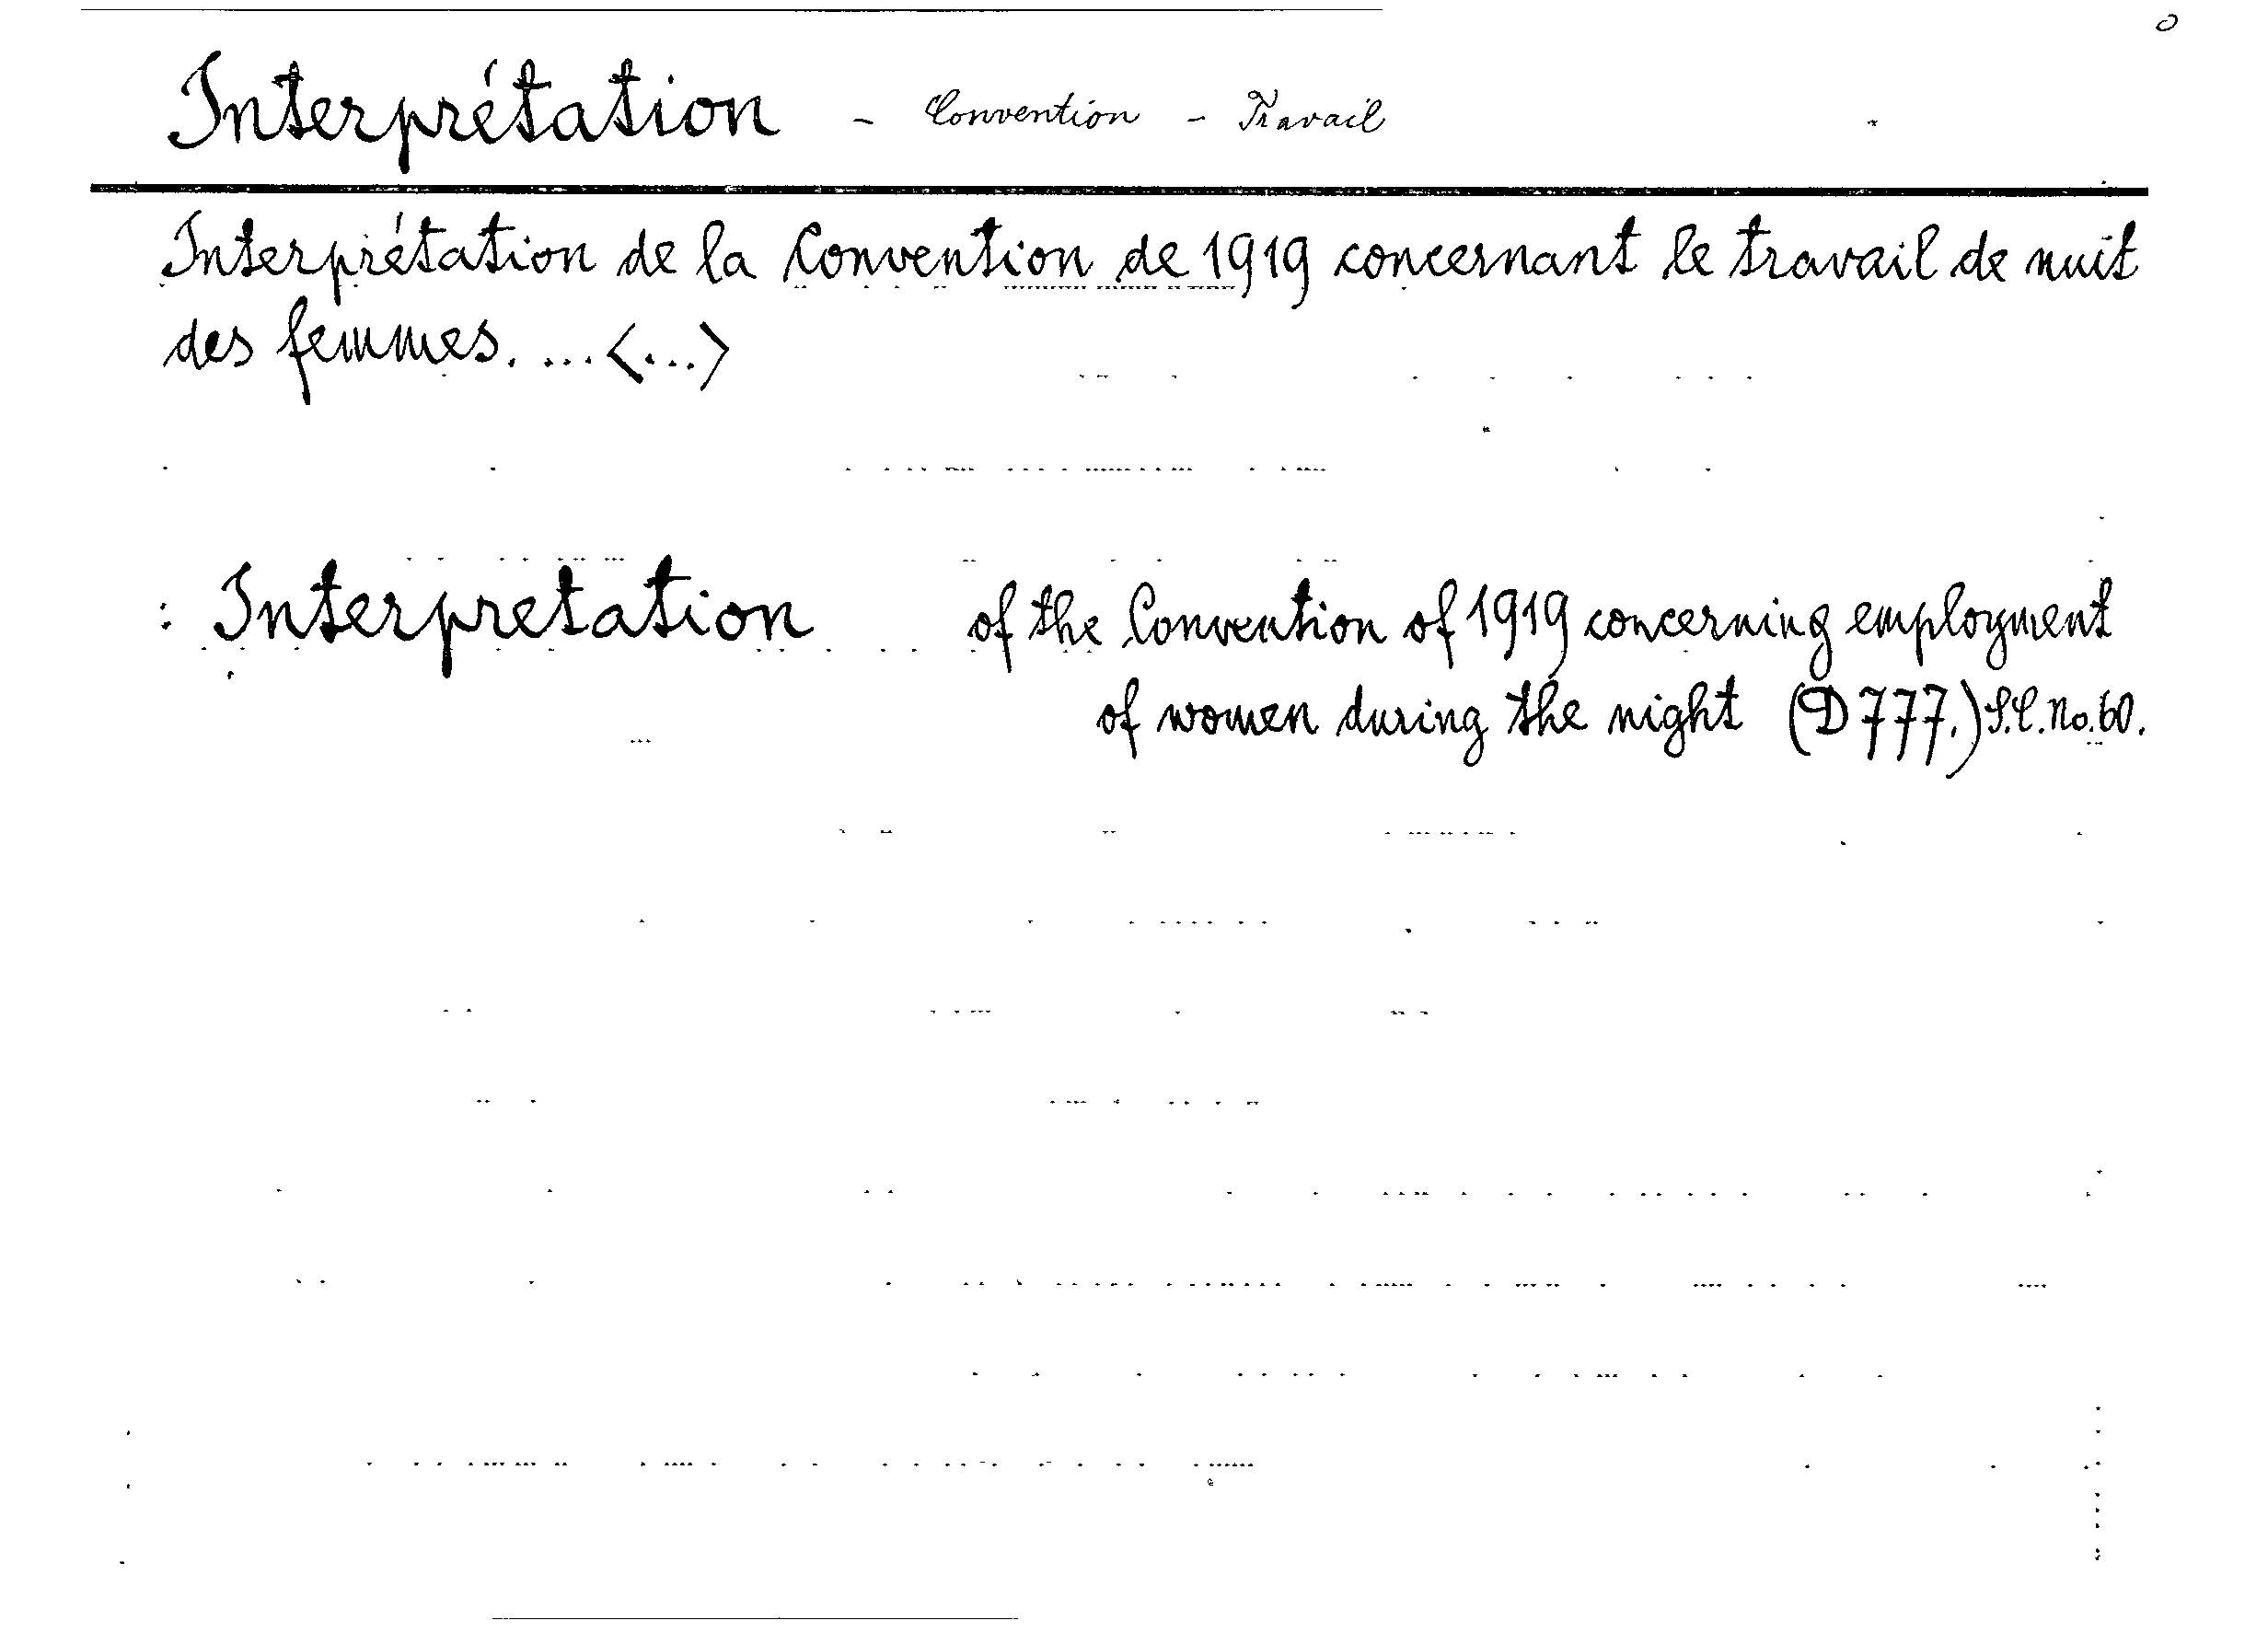 Interprétation - Convention - Travail
Interprétation de la Convention de 1919 concernant le travail de nuit
des femmes. ...<...>
: Interpretation of the Convention of 1919 concerning employment
of women during the night (D 777.) S.C. No. 60.